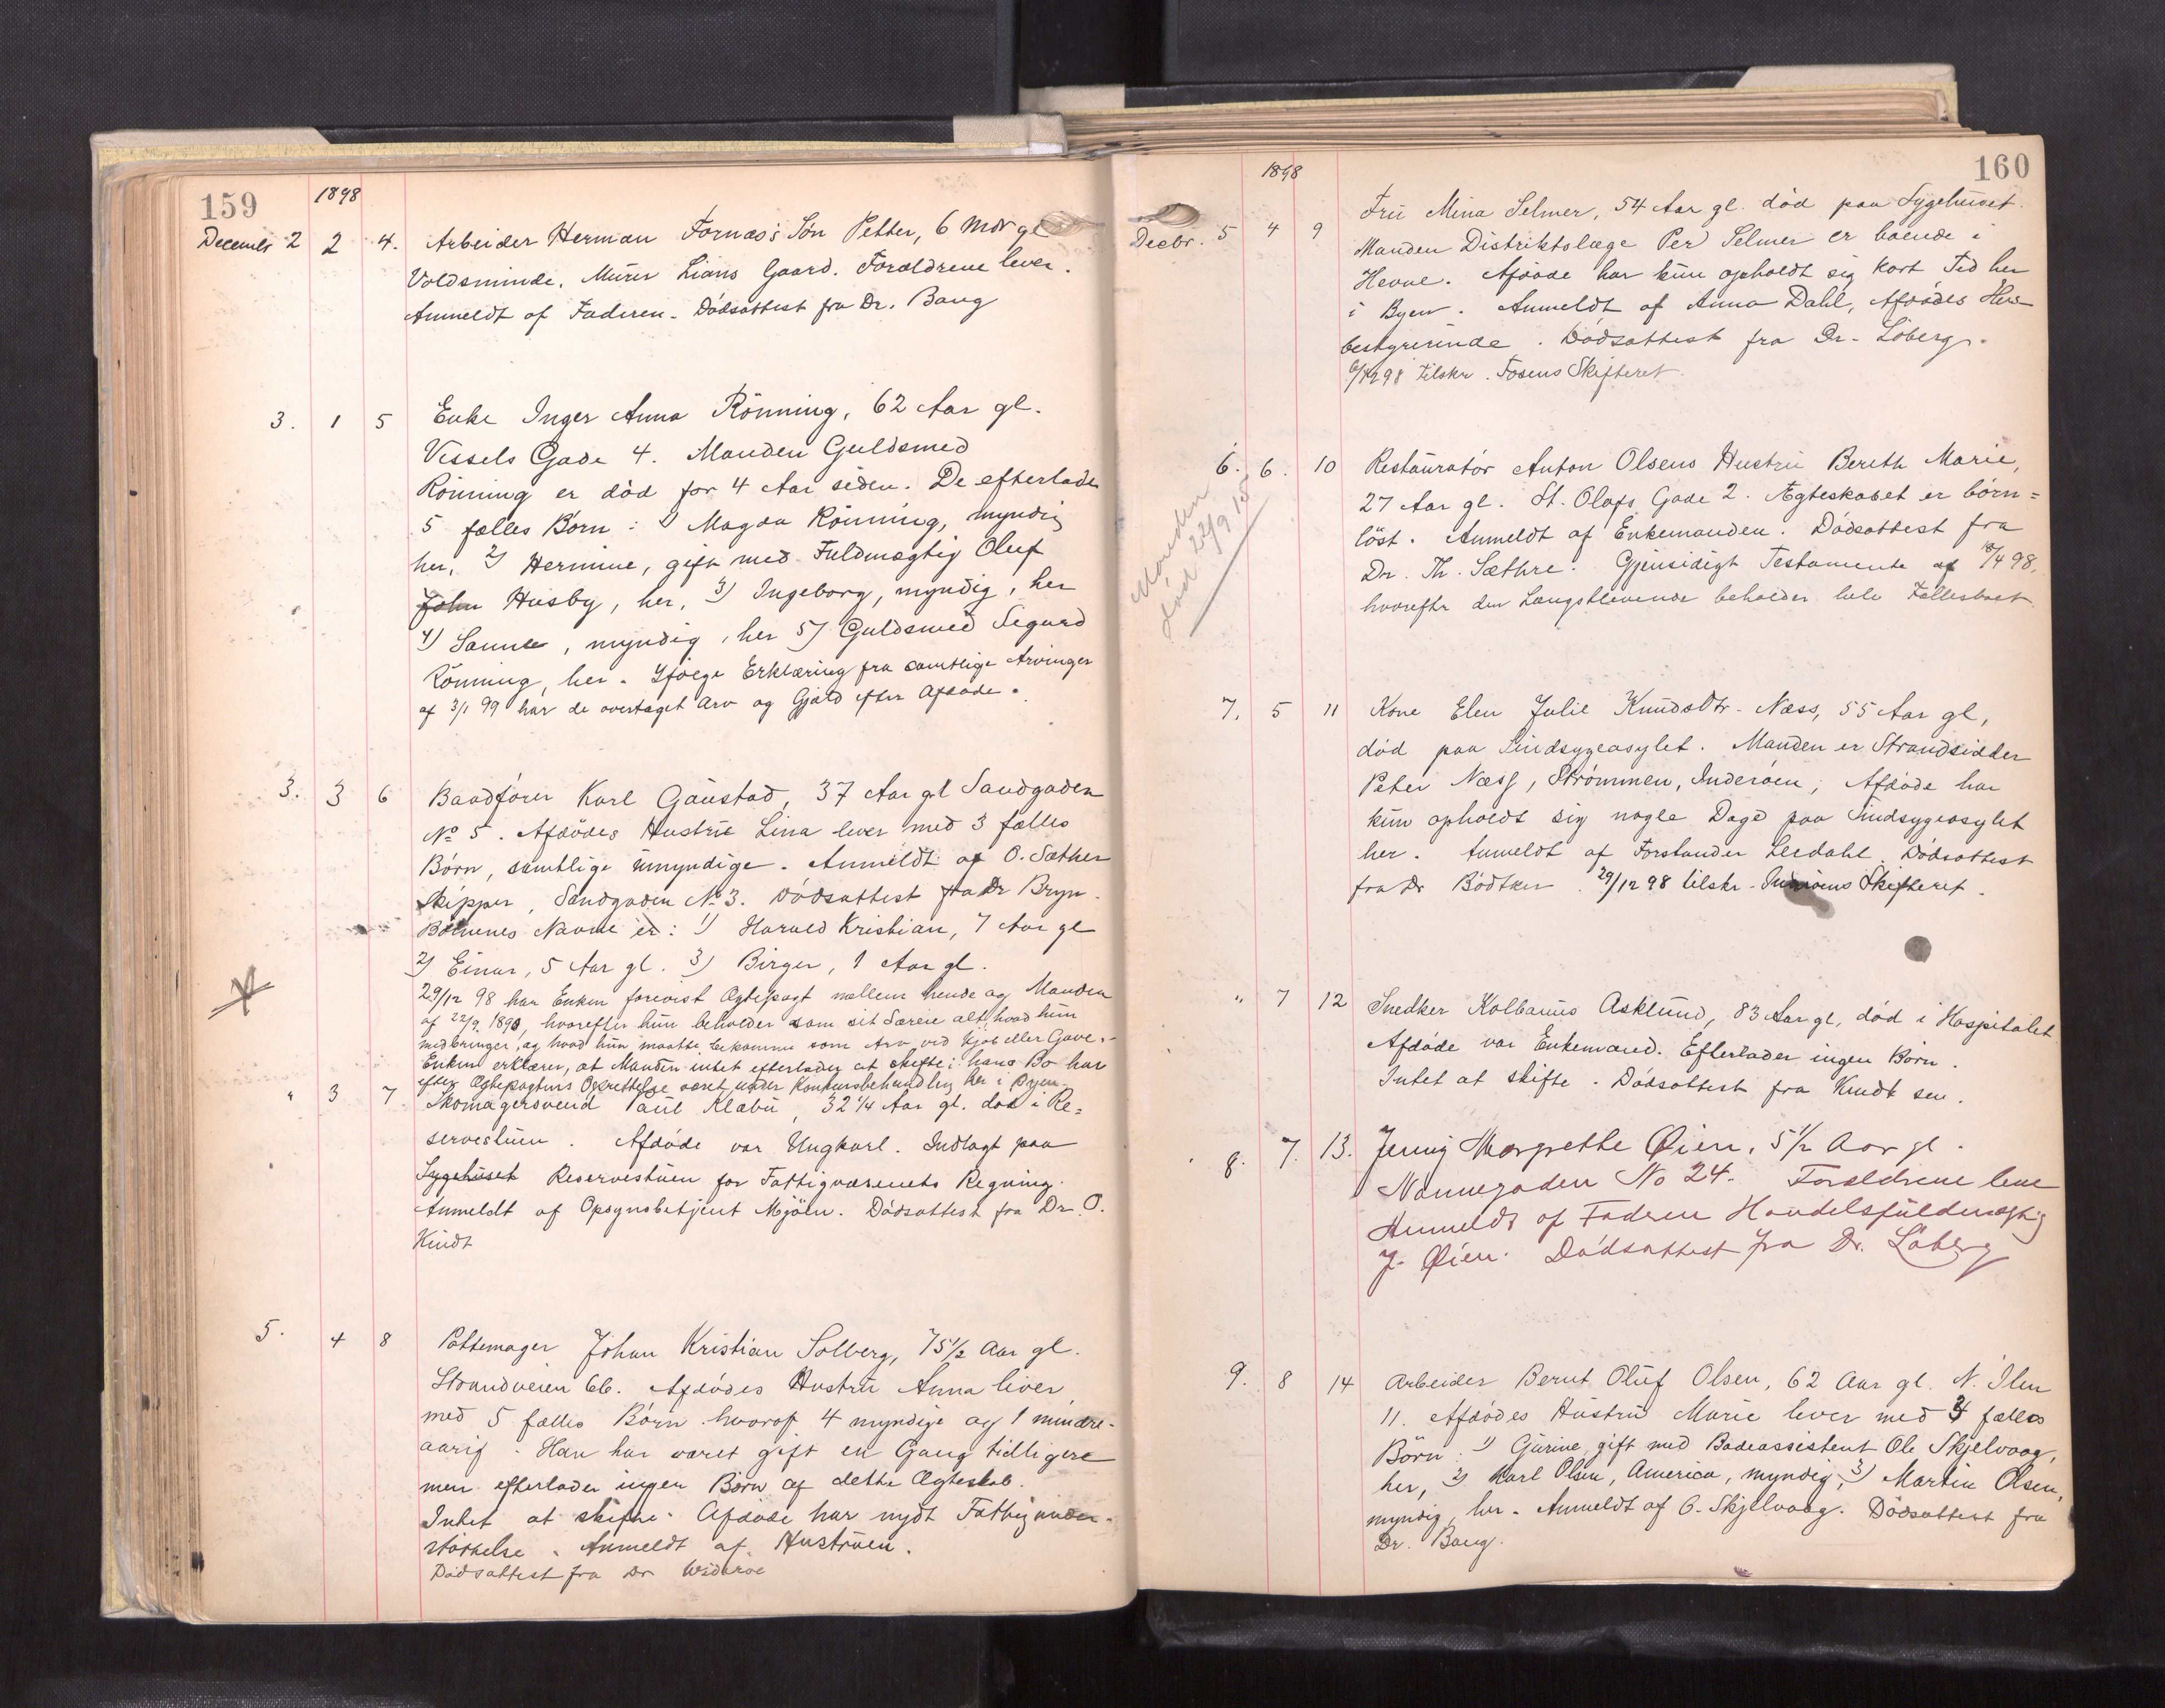 159
1898
December 2 2 4. Arbeider Herman Fornæs's Sön Petter, 6 Mdr gl
Voldsminde, Murer Lians Gaard. Forældrene lever.
Anmeldt af Faderen. Dödsattest fra Dr. Bang
3. 1 5 Enke Inger Anna Rönning, 62 Aar gl.
Vessels Gade 4. Manden Guldsmed
Rönning er död for 4 Aar siden. De efterlader
5 fælles Börn: 1) Magda Rönning, myndig
her, 2) Hermine, gift med Fuldmægtig Oluf
John Husby, her, 3) Ingeborg, myndig, her
4) , myndig, her 5) Guldsmed Sigurd
Rönning, her. Ifölge Erklæring fra samtlige Arvinger
af 3/1 99 har de overtaget Arv og Gjæld efter Afdöde.
3. 3 6 Baadförer Karl Gaustad, 37 Aar gl Sandgaden
No 5. Afdödes Hustru Lina lever med 3 fælles
Börn, samtlige umyndige. Anmeldt af O. Sæther
Skipper, Sandgaden No 3. Dödsattest fra Dr Bryn.
Börnenes Navne er: 1) Harald Kristian, 7 Aar gl
2) Einar, 5 Aar gl. 3) Birger, 1 Aar gl.
29/12 98 har Enken forevist Ægtepagt mellem hende og Manden
af 22/9 1890, hvorefter hun beholder som sit Særeie alt, hvad hun
medbringer, og hvad hun maatte bekomme som Arv, ved Kjöb eller Gave.
Enken erklærer, at Manden intet efterlader at skifte; hans Bo har
efter Ægtepagtens Oprettelse været under Konkursbehandling her i Byen.
" 3 7 Skomagersvend Paul Klæbu, 32 1/4 Aar gl. död i Re=
servestuen. Afdöde var Ungkarl. Indlagt paa
Sygehuset Reservestuen for Fattigvæsenets Regning.
Anmeldt af Opsynsbetjent Mjöln. Dödsattest fra Dr. O.
Kindt
5. 4 8 Pottemager Johan Kristian Solberg, 75 1/2 Aar gl.
Strandveien 66. Afdödes Hustru Anna lever
med 5 fælles Börn hvoraf 4 myndige og 1 mindre-
aarig. Han har været gift en Gang tidligere
men efterlader ingen Börn af dette Ægteskab.
Intet at skifte. Afdöde har nydt Fattigunder-
støttelse. Anmeldt af Hustruen.
Dödsattest fra Dr Wideröe
160
1898
Decbr. 5 4 9 Fru Mina Selmer, 54 Aar gl. död paa Sygehuset.
Manden Distriktslæge Per Selmer er boende i
Hevne. Afdöde har kun opholdt sig kort Tid her
i Byen. Anmeldt af Anna Dahl, Afdödes Hus-
bestyrerinde. Dödsattest fra Dr. Löberg.
6/12 98 tilskr. Fosens Skifteret.
6. 6. 10 Restauratör Anton Olsens Hustru Bereth Marie,
27 Aar gl. St. Olafs Gade 2. Ægteskabet er börn=
löst. Anmeldt af Enkemanden. Dödsattest fra
Dr. Th. Sæthre. Gjensidigt Testamente af 18/4 98,
hvorefter den Længstlevende beholder hele Fællesboet.
Manden
död 22/9 15
7. 5 11 Kone Elen Julie KnudsDtr. Næss, 55 Aar gl,
död paa Sindsygeasylet. Manden er Strandsidder
Peter Næss, Strömmen, Inderöen; Afdöde har
kun opholdt sig nogle Dage paa Sindsygeasylet
her. Anmeldt af Forstander Lerdahl. Dödsattest
fra Dr Bödtker. 29/12 98 tilskr. Inderöens Skifteret.
" 7 12 Snedker Kolbanus Asklund, 83 Aar gl, död i Hospitalet
Afdöde var Enkemand. Efterlader ingen Börn.
Intet at skifte. Dödsattest fra Kindt sen.
8. 7. 13. Jenny Margrethe Øien, 5 1/2 Aar gl.
Nonnegaden No 24. Forældrene leve
Anmeldt af Faderen Handelsfuldmægtig
J. Øien. Dödsattest fra Dr. Löberg
9. 8 14 Arbeider Bernt Oluf Olsen, 62 Aar gl. N. Ilen
11. Afdödes Hustru Marie lever med 3 fælles
Börn: 1) Gjurine, gift med Badeassistent Ole Skjelvaag,
her, 2) Karl Olsen, America, myndig, 3) Martin Olsen,
myndig, her. Anmeldt af O. Skjelvaag. Dödsattest fra
Dr. Bang.